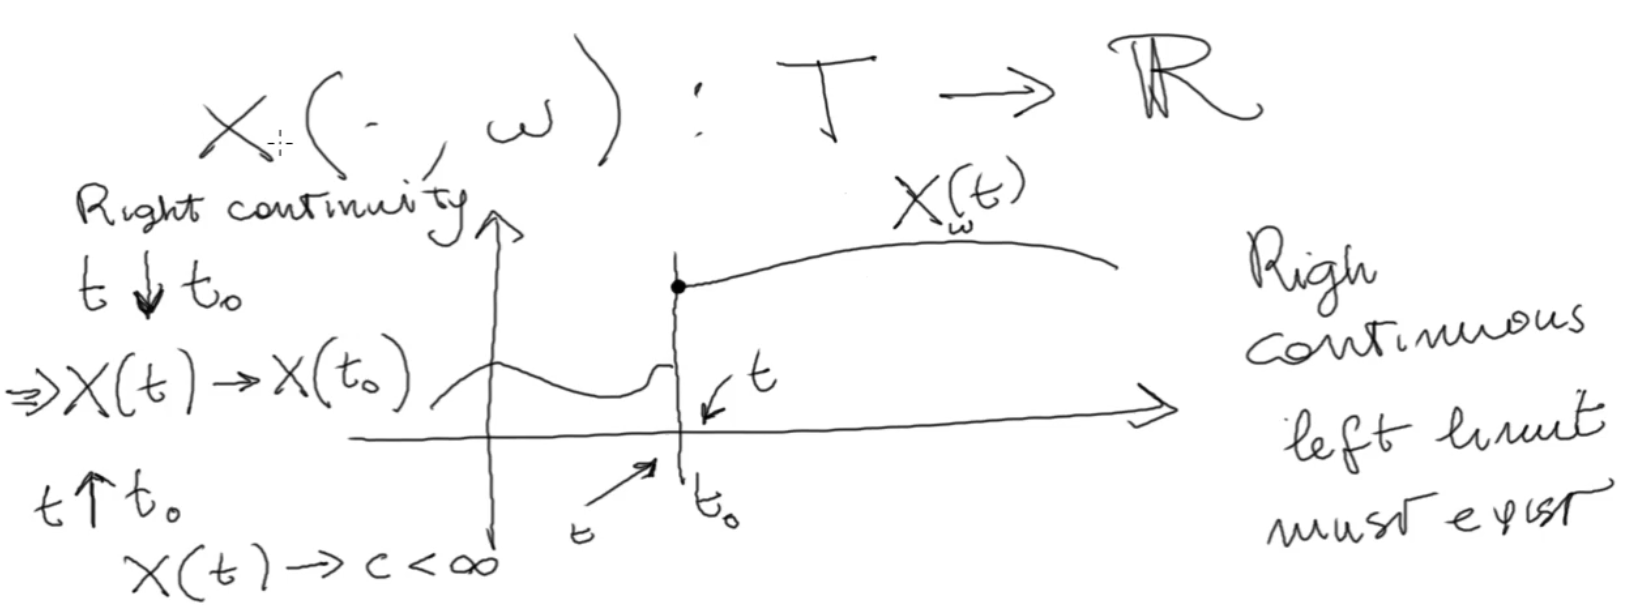 X(·, ω) : T → ℝ
Right continuity
t ↓ t₀
⇒ X(t) → X(t₀)
t ↑ t₀
X(t) → c < ∞
X_ω(t)
t
t
t₀
Righ
continuous
left limit
must exist